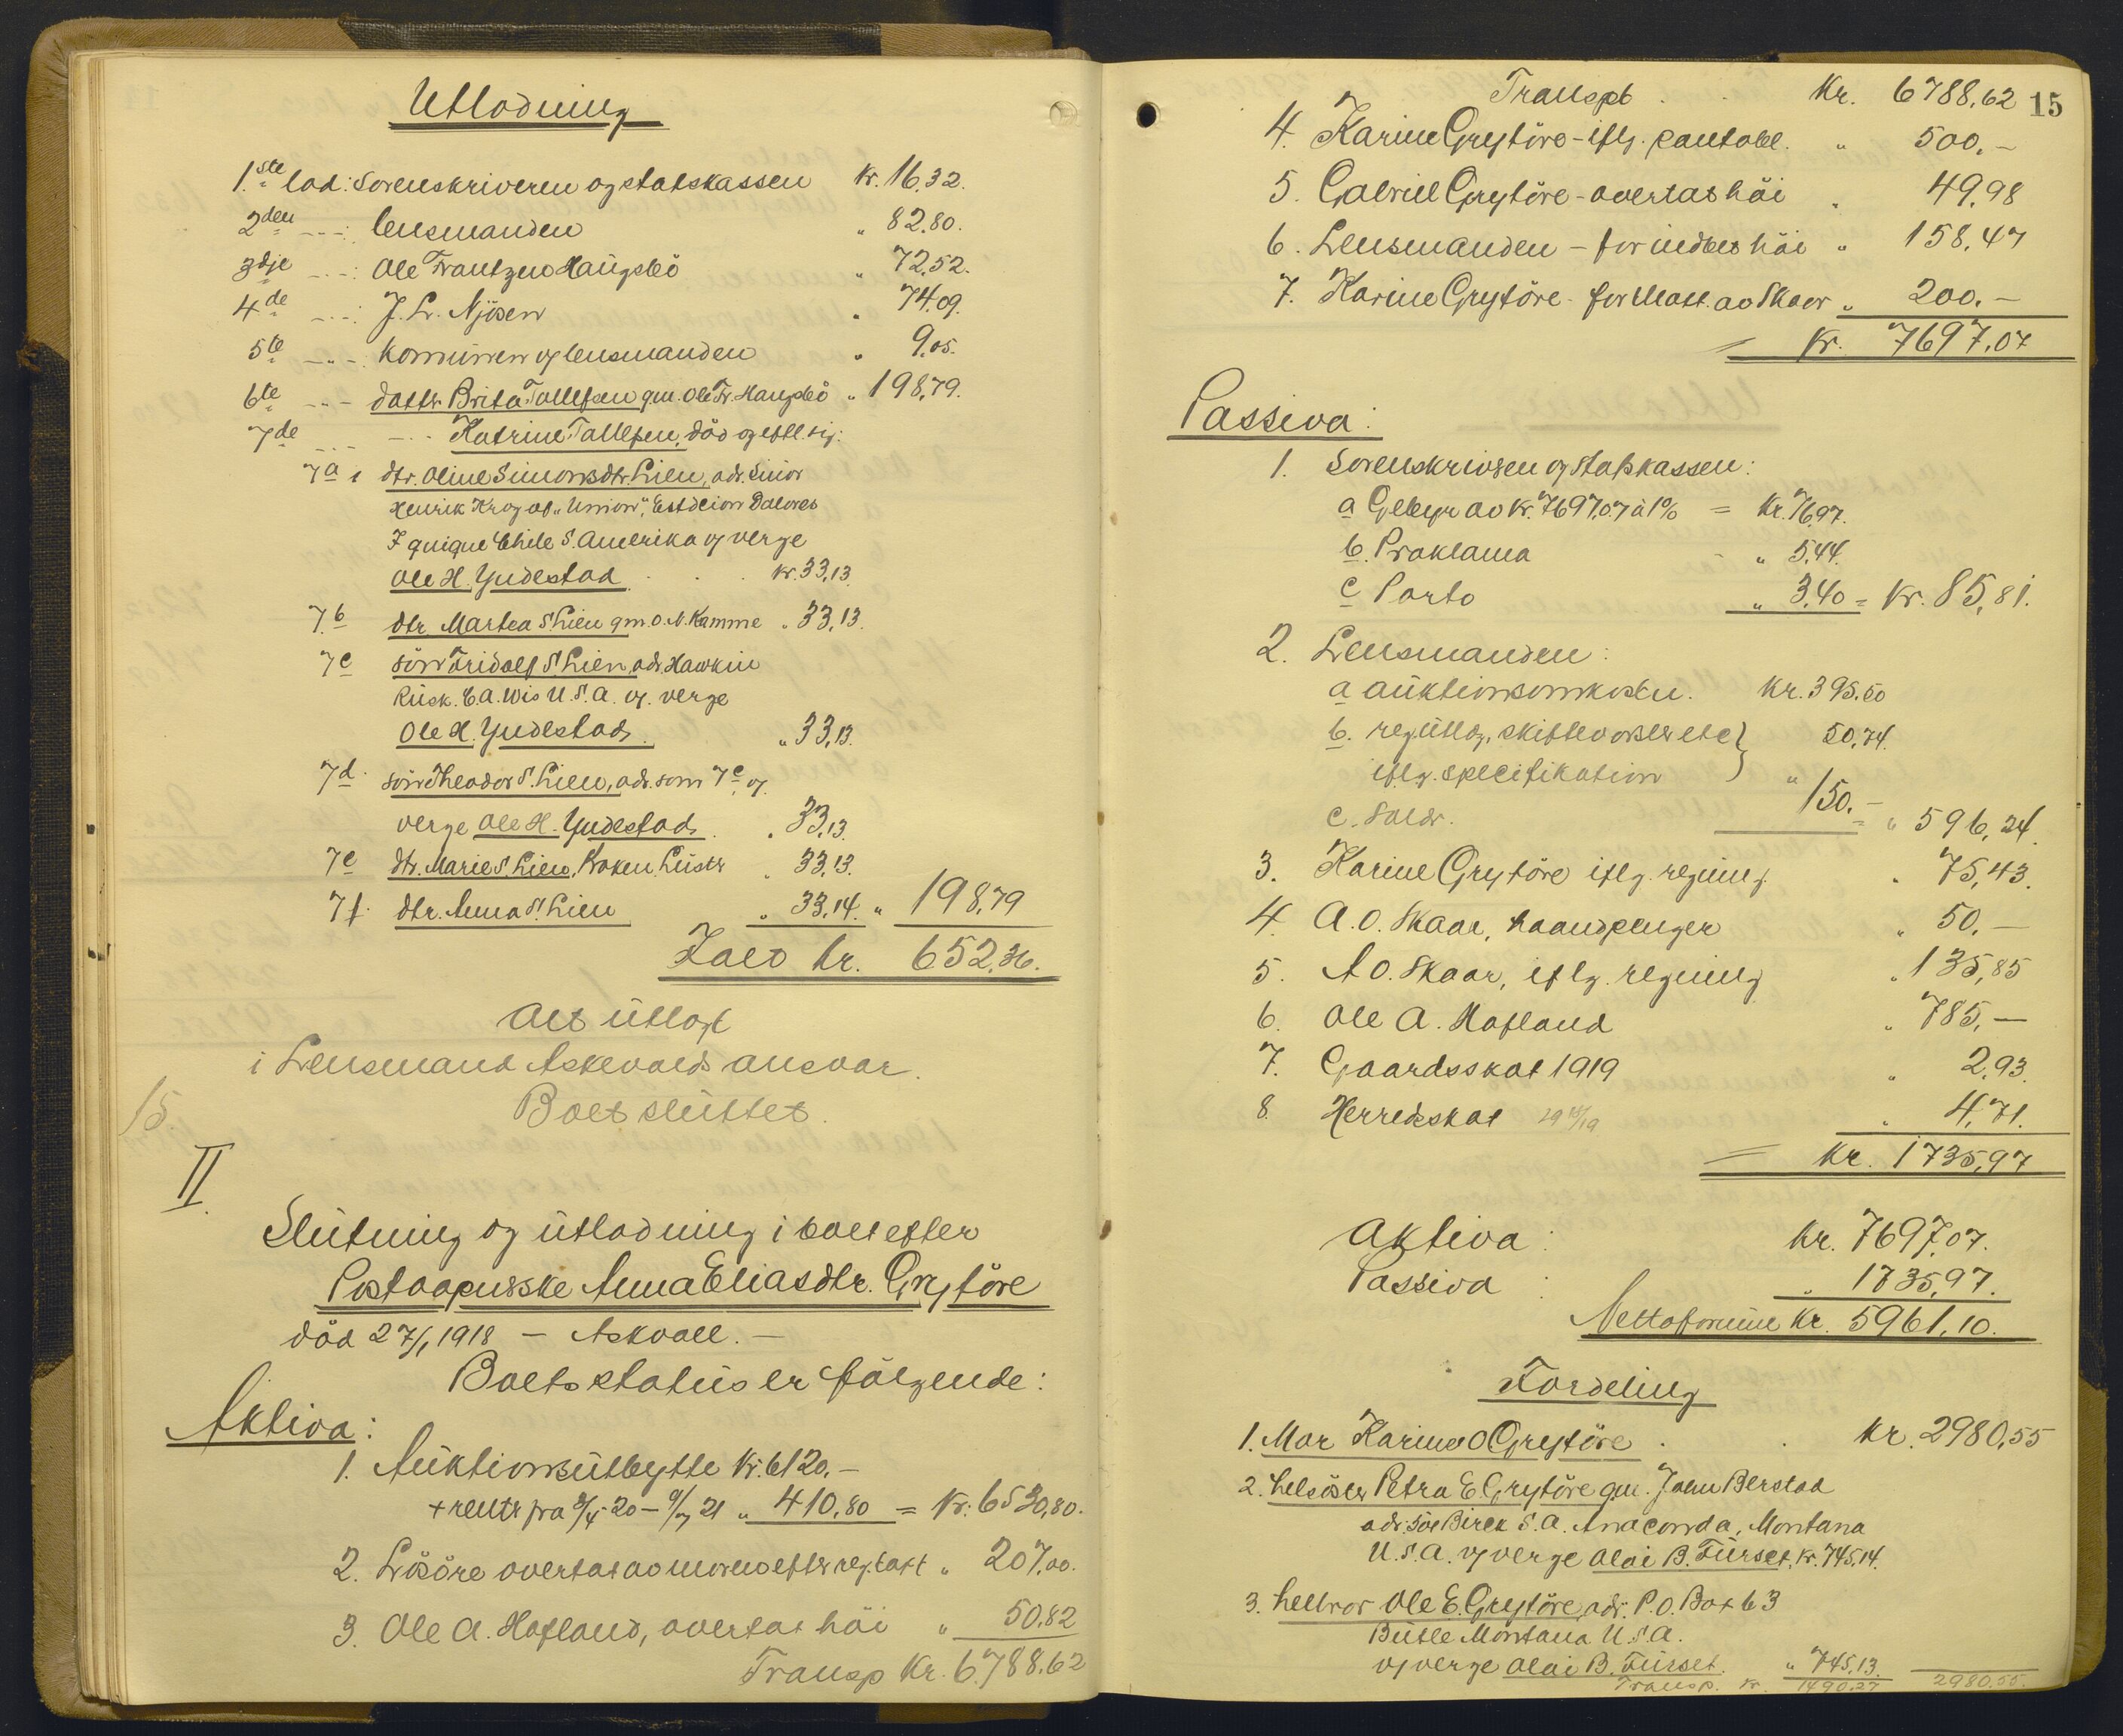 Utlodning
1.ste lod: Sorenskriveren og statskassen kr. 16,32.
2den -"-: lensmanden " 82.80.
3dje -"-: Ole Frantzen Haugsbö " 72,52.
4de -"-: J. L. Njösen " 74,09.
5te -"-: Kommunen og lensmanden " 9,05.
6te -"- datter Brita Tollefsen gm. Ole Fr. Haugsbö " 198,79.
7de -"- -"- Katrine Tollefsen, död og eftl. sig:
7a dtr. Oline Simonsdtr. Lien, adr. Sinior
Henrik Krog of. "Union", Estacion Dolores
Iquique Chile S. Amerika og verge
Ole H. Yndestad kr. 33,13
7b dtr. Martea S. Lien gm. O. N. Kamme " 33,13.
7c sön Fridolf S. Lien, adr. Hawkin
Rusk. C.A. Wis U.S.A. og verge
Ole H. Yndestad " 33,13.
7d. sön Theodor S. Lien, adr. som 7c, og
verge Ole H. Yndestad " 33,13.
7e dtr. Marie S. Lien, Kroken, Luster " 33,13.
7f. dtr. Anna S. Lien " 33,14. " 198,79
Ialt kr. 652,36.
Alt utlagt
i Lensmand Askevolds ansvar.
15. Boet sluttet.
II.
Slutning og utlodning i boet efter
Postaapnerske Anna Eliasdtr. Grytöre
död 27/1 1918 – Askvoll. –
Boets status er fölgende:
Aktiva:
1. Auktionsutbytte kr. 6120,–
+ renter fra 9/4 20 – 9/7 21 " 410,80 = kr. 6530,80.
2. Lösöre overtat av moren efter reg. takt " 207,00.
3. Ole A. Hofland, overtat höi " 50,82
Transp kr. 6788.62
15
Transpt kr. 6788,62
4. Karine Grytöre - iflg. pantobl. " 500,–
5. Gabriel Grytöre - overtat höi " 49,98
6. Lensmanden – for indber. höi " 158,47
7. Karine Grytöre - for Matt. av Skaar " 200.–
= kr. 7697,07
Passiva:
1. Sorenskriveren og Statskassen:
a Gebyr av kr. 7697,07 à 1% = kr. 76,97.
b. Proklama " 5,44.
c Porto " 3,40 = kr. 85,81.
2. Lensmanden:
a auktionsomkostn. kr. 395.50
b. reg. utlæg, skiftevorsler etc } 50,74.
iflg. specifikation "
c. Salær. 150.– = " 596,24.
3. Karine Grytöre iflg. regning " 75,43.
4. A. O. Skaar, haandpenger " 50.–
5. A O. Skaar, iflg. regning " 135,85
6. Ole A. Hofland " 785,–
7. Gaardsskat 1919 " 2,93.
8. Herredsskat 1918/19 " 4,71.
= kr. 1735,97
Aktiva: kr. 7697,07.
Passiva: " 1735,97.
Nettoformue kr. 5961,10.
Fordeling
1. Mor Karine O Grytöre kr. 2980,55
2. helsöster Petra E. Grytöre gm. John Berstad
adr. 502 Birck S.A. Anaconda, Montana
U.S.A. og verge Olai B. Furset. kr. 745,14.
3. helbror Ole E. Grytöre, adr. P.O. Box 63
Butte Montana U.S.A.
og verge Olai B. Furset. " 745,13.
Transp. kr. 1490,27 2980,55.